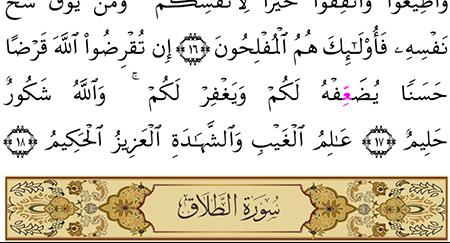 وَأَطِيعُوا۟ وَأَنفِقُوا۟ خَيْرًا لِّأَنفُسِكُمْ ۗ وَمَن يُوقَ شُحَّ
نَفْسِهِۦ فَأُو۟لَٰٓئِكَ هُمُ ٱلْمُفْلِحُونَ ﴿١٦﴾ إِن تُقْرِضُوا۟ ٱللَّهَ قَرْضًا
حَسَنًا يُضَٰعِفْهُ لَكُمْ وَيَغْفِرْ لَكُمْ ۚ وَٱللَّهُ شَكُورٌ
حَلِيمٌ ﴿١٧﴾ عَٰلِمُ ٱلْغَيْبِ وَٱلشَّهَٰدَةِ ٱلْعَزِيزُ ٱلْحَكِيمُ ﴿١٨﴾
سُورَةُ الطَّلَاقِ